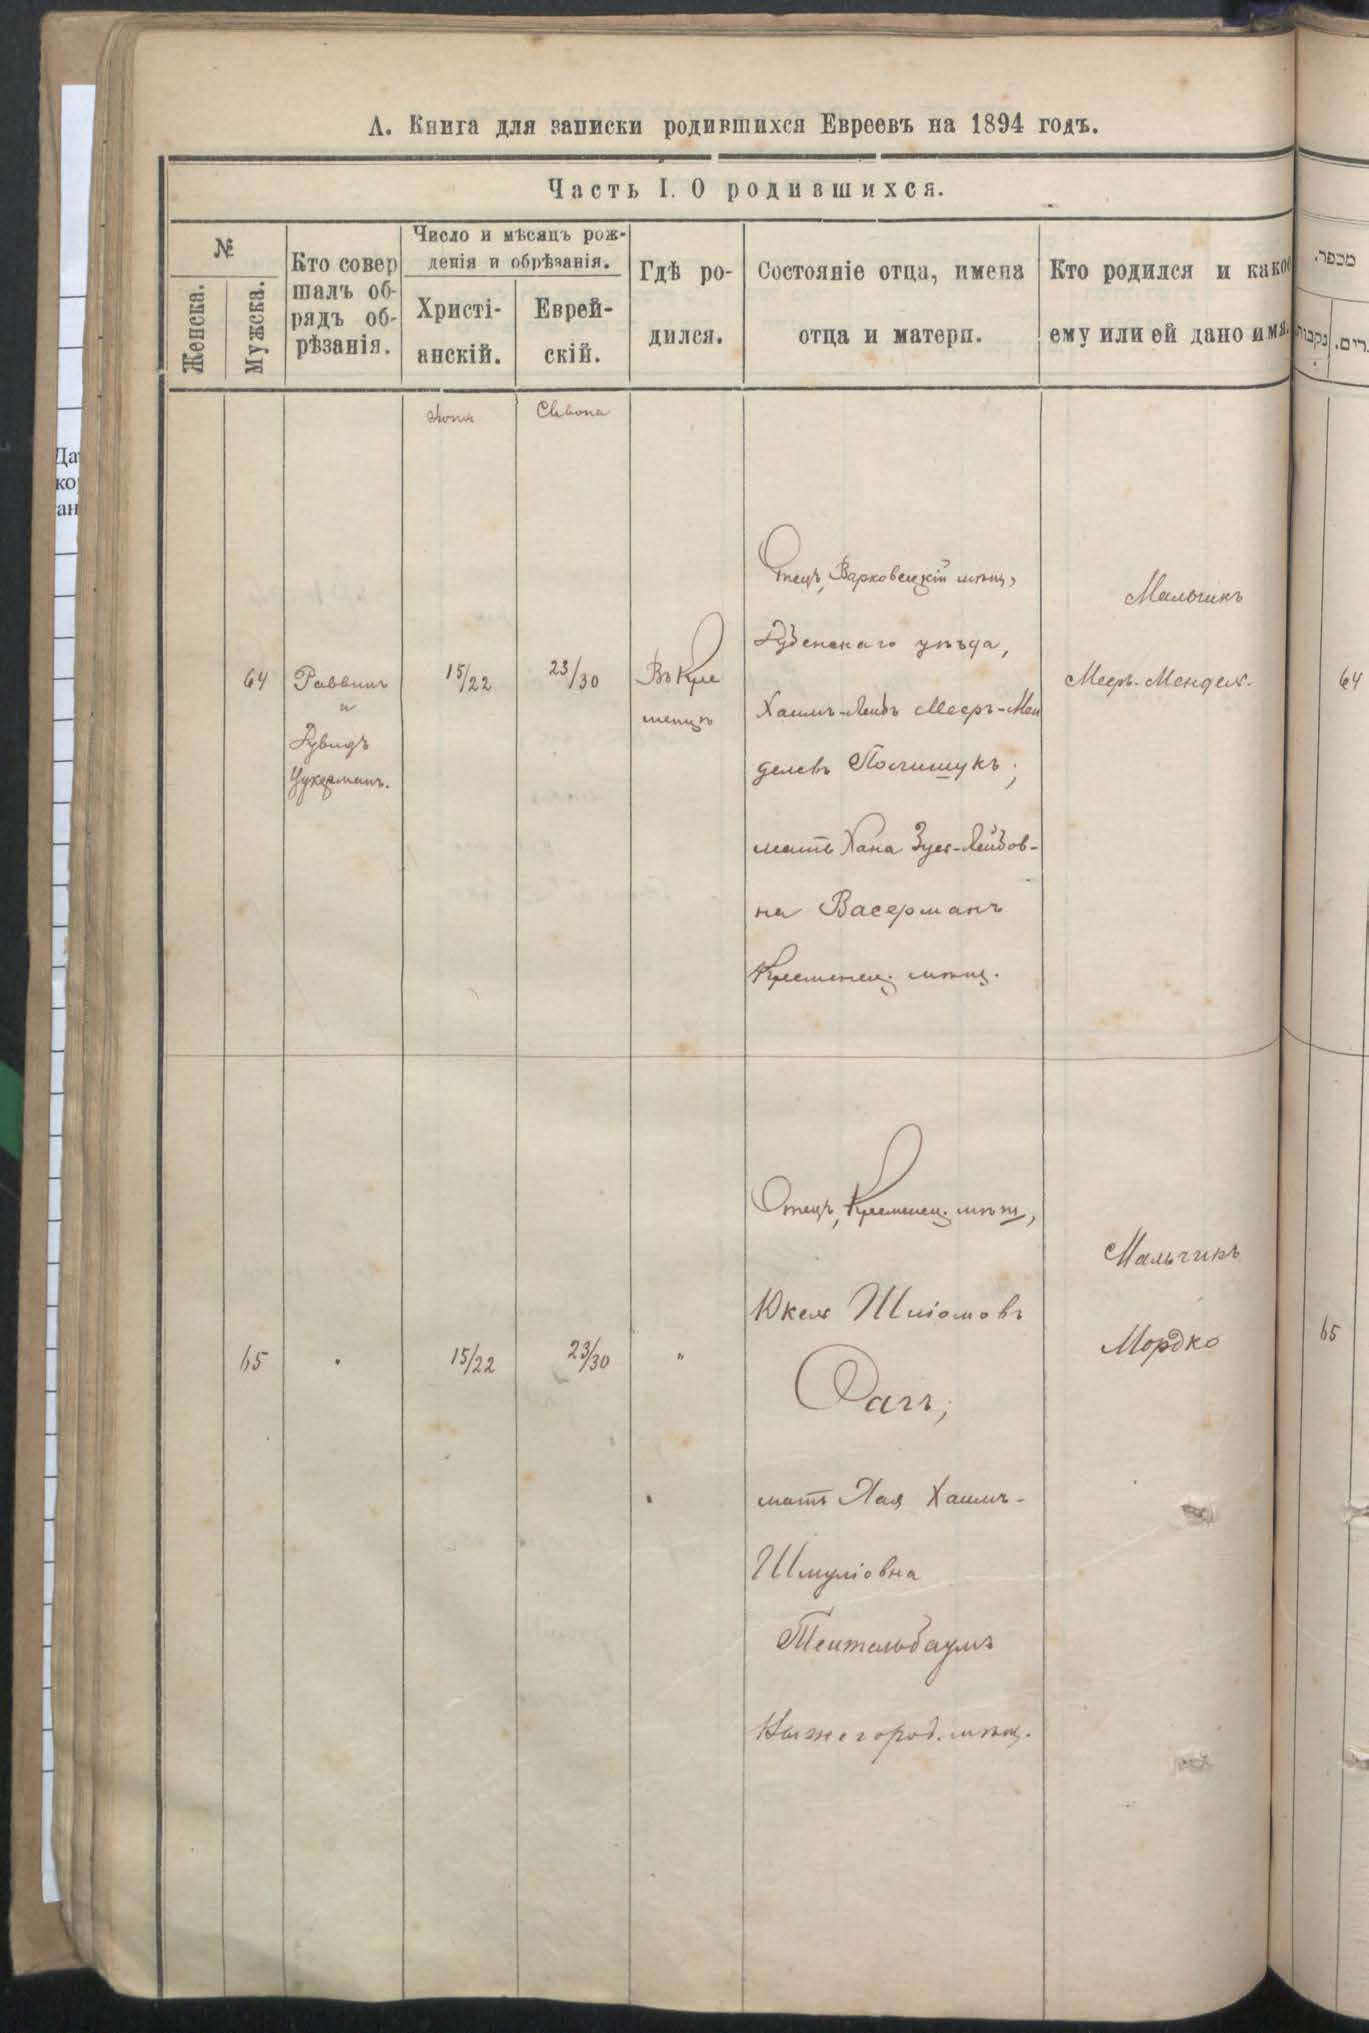 А. Книга для записки родившихся Евреевъ на 1894 годъ.
Часть I. О родившихся.
№
Женска.
Мужска.
Кто совер
шалъ об-
рядъ об-
рѣзанія.
Число и мѣсяцъ рож-
денія и обрѣзанія.
Христі-
анскій.
Еврей-
скій.
Гдѣ ро-
дился.
Состояніе отца, имена
отца и матери.
Кто родился и какое
ему или ей дано имя.
מספר.
נקבות
Іюня
Сивона
64
Раввинъ
и
Дувидъ
Цукерманъ.
15/22
23/30
Въ Кре
менцѣ
Отецъ, Варковецкій мѣщ,
Дубенскаго уѣзда,
Хаимъ-Лейбъ Мееръ-Мен
делевъ Полищукъ;
мать Хана Зуся-Лейбов-
на Васерманъ
Кременец. мѣщ.
Мальчикъ
Мееръ-Мендель.
64
65
"
15/22
23/30
"
Отецъ, Кременец. мѣщ,
Юкель Шліомовъ
Фагъ;
мать Хая Хаимъ-
Шмуліовна
Тейтельбаумъ
Мальчикъ
Мордко
65
Да
ко
ан